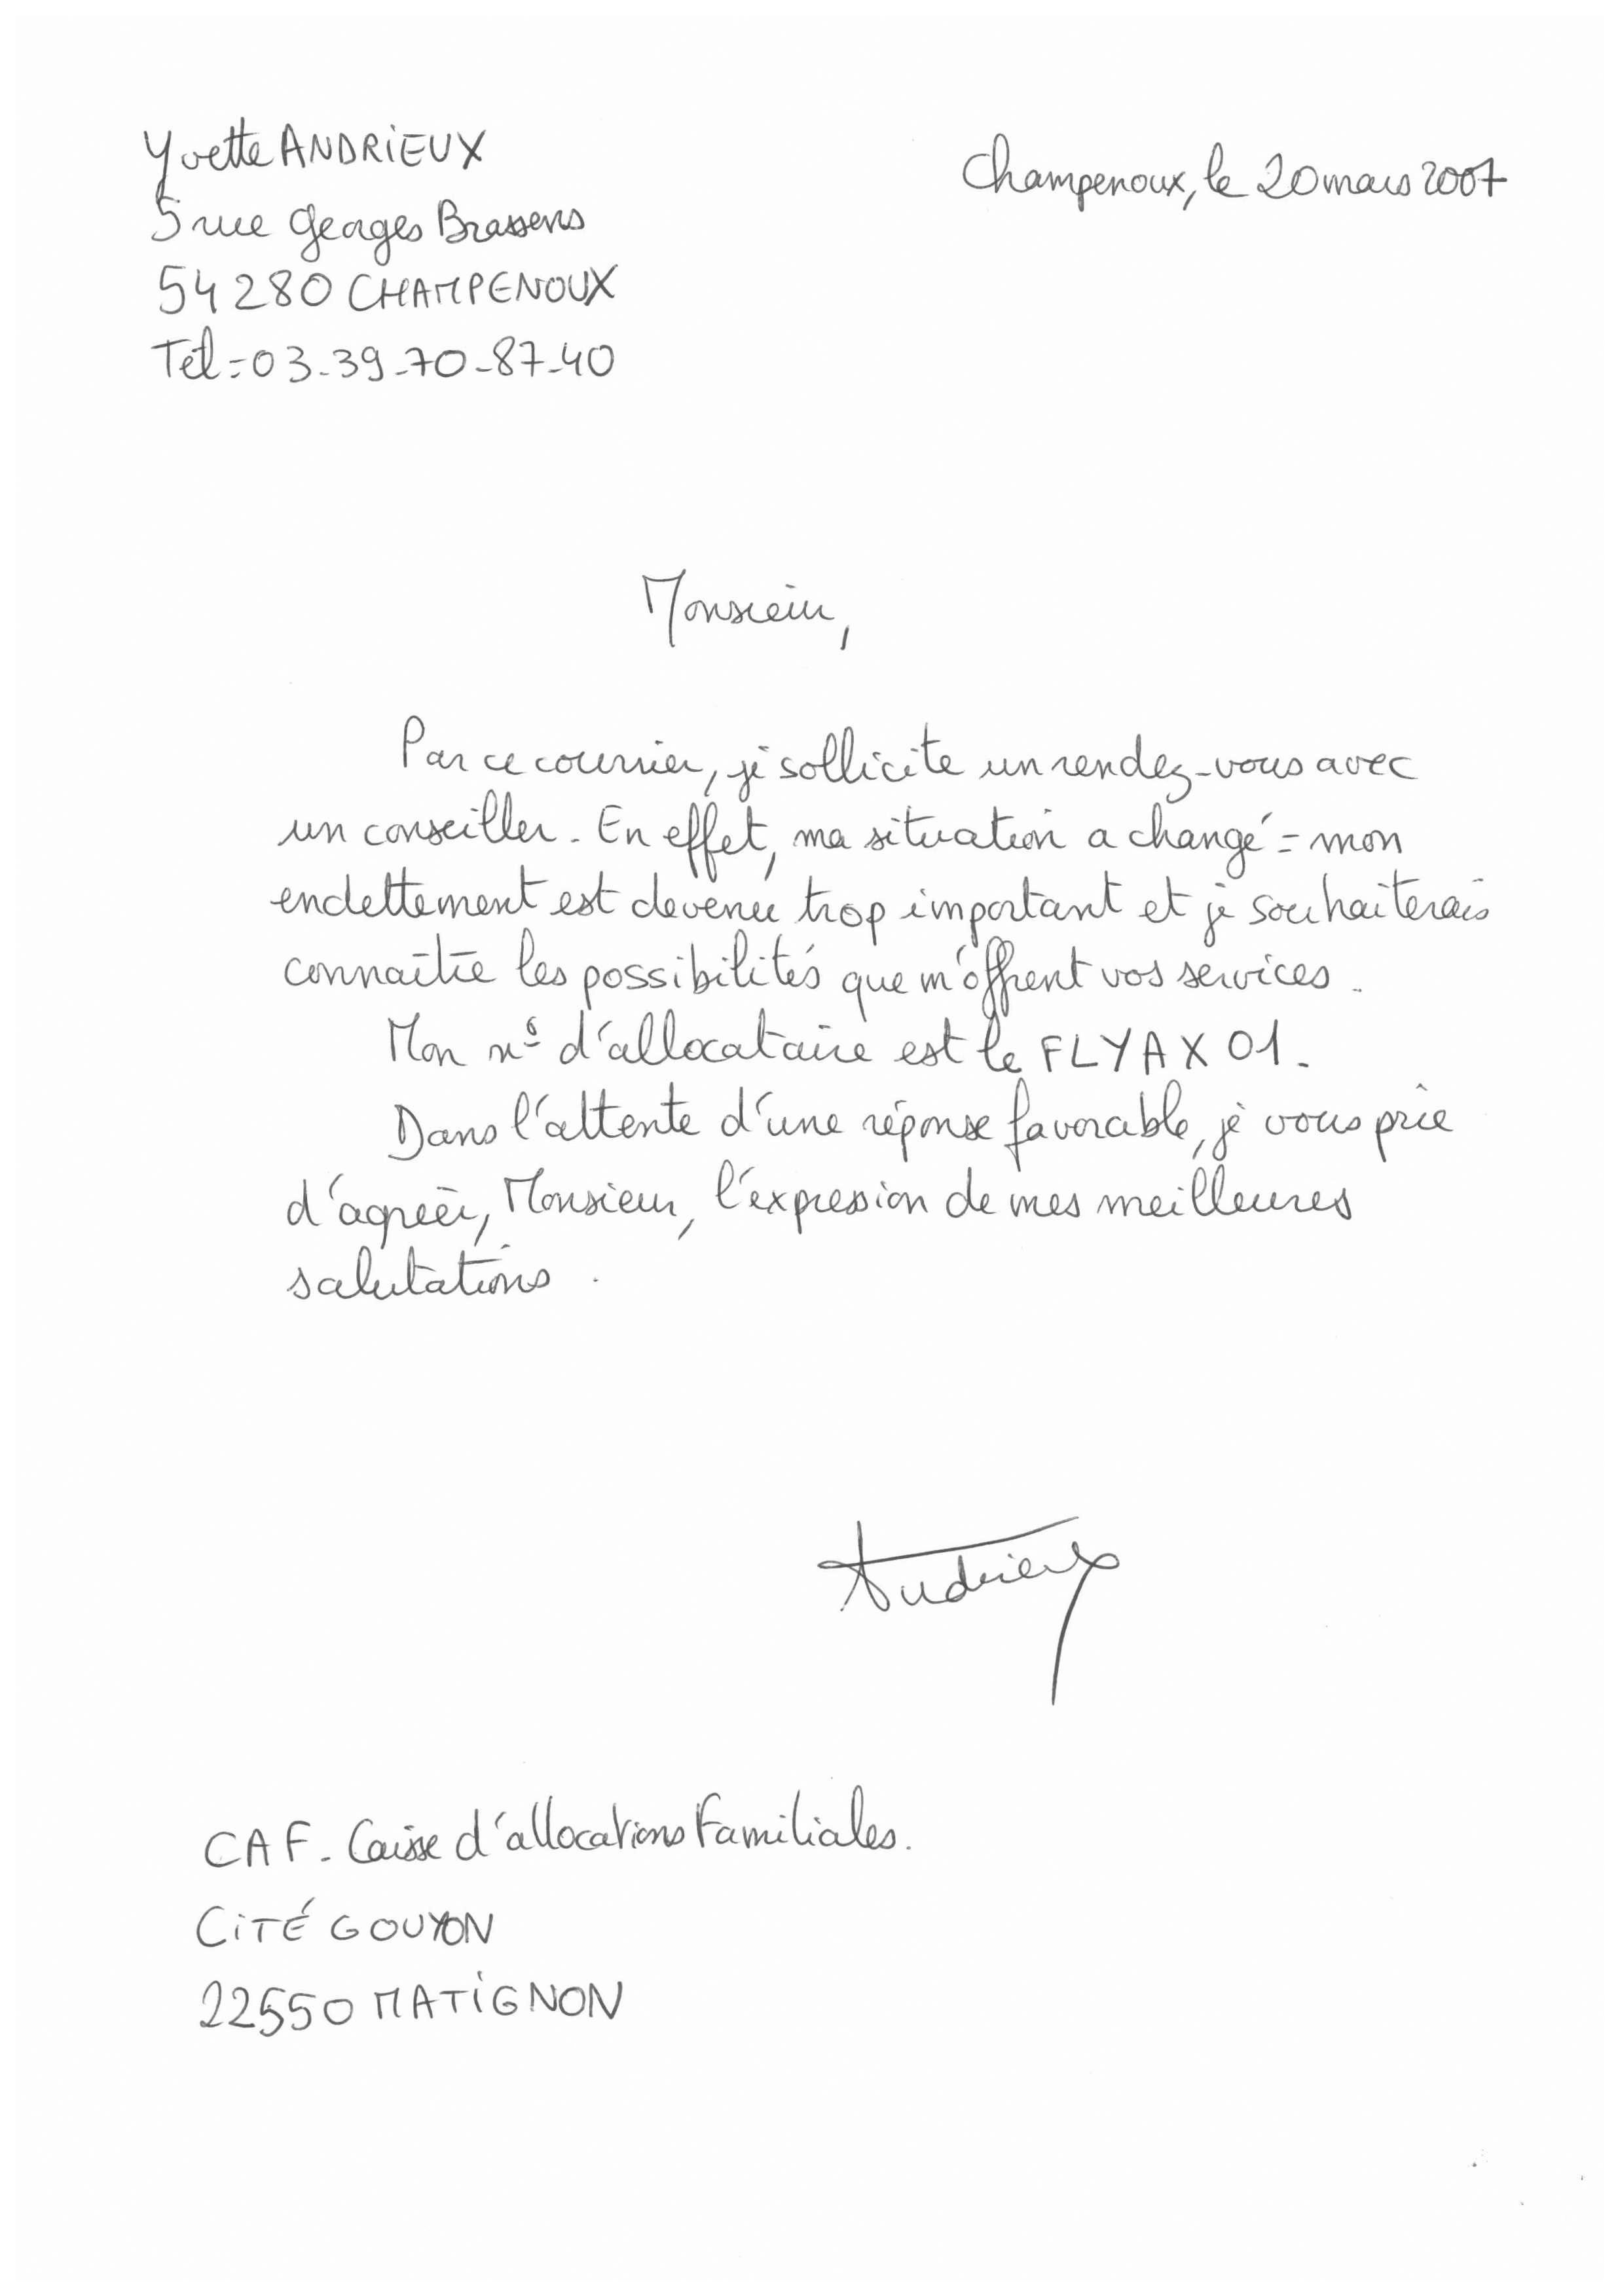 Yvette ANDRIEUX
Champenoux, le 20 mars 2007
5 rue Georges Brassens
54 280 CHAMPENOUX
Tél = 03-39-70-87-40
Monsieur,
Par ce courrier, je sollicite un rendez-vous avec
un conseiller. En effet, ma situation a changé = mon
endettement est devenu trop important et je souhaiterais
connaître les possibilités que m'offrent vos services.
Mon n° d'allocataire est le FLYAX01.
Dans l'attente d'une réponse favorable, je vous prie
d'agréer, Monsieur, l'expression de mes meilleures
salutations.
Andrieux
CAF - Caisse d'allocations Familiales.
CITÉ GOUYON
22550 MATIGNON